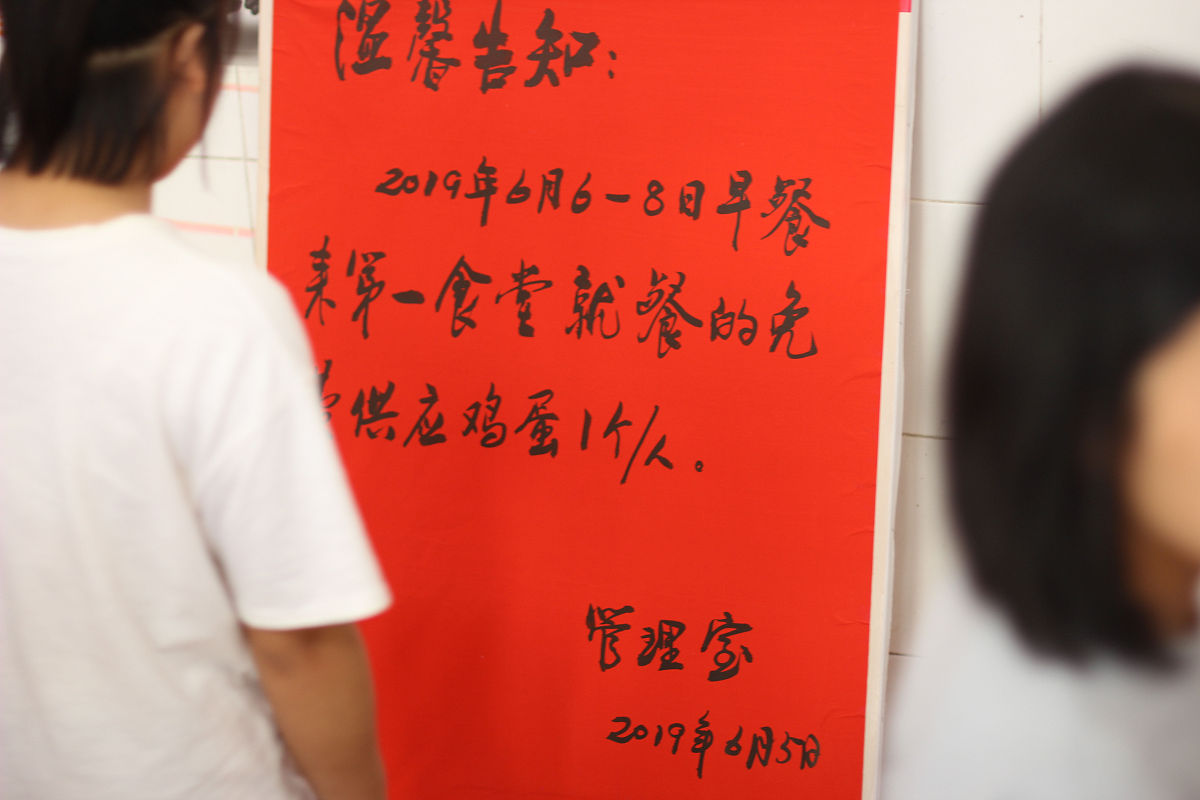 温馨告知:
2019年6月6-8日早餐
来第一食堂就餐的免
费供应鸡蛋1个/人。
管理室
2019年6月5日